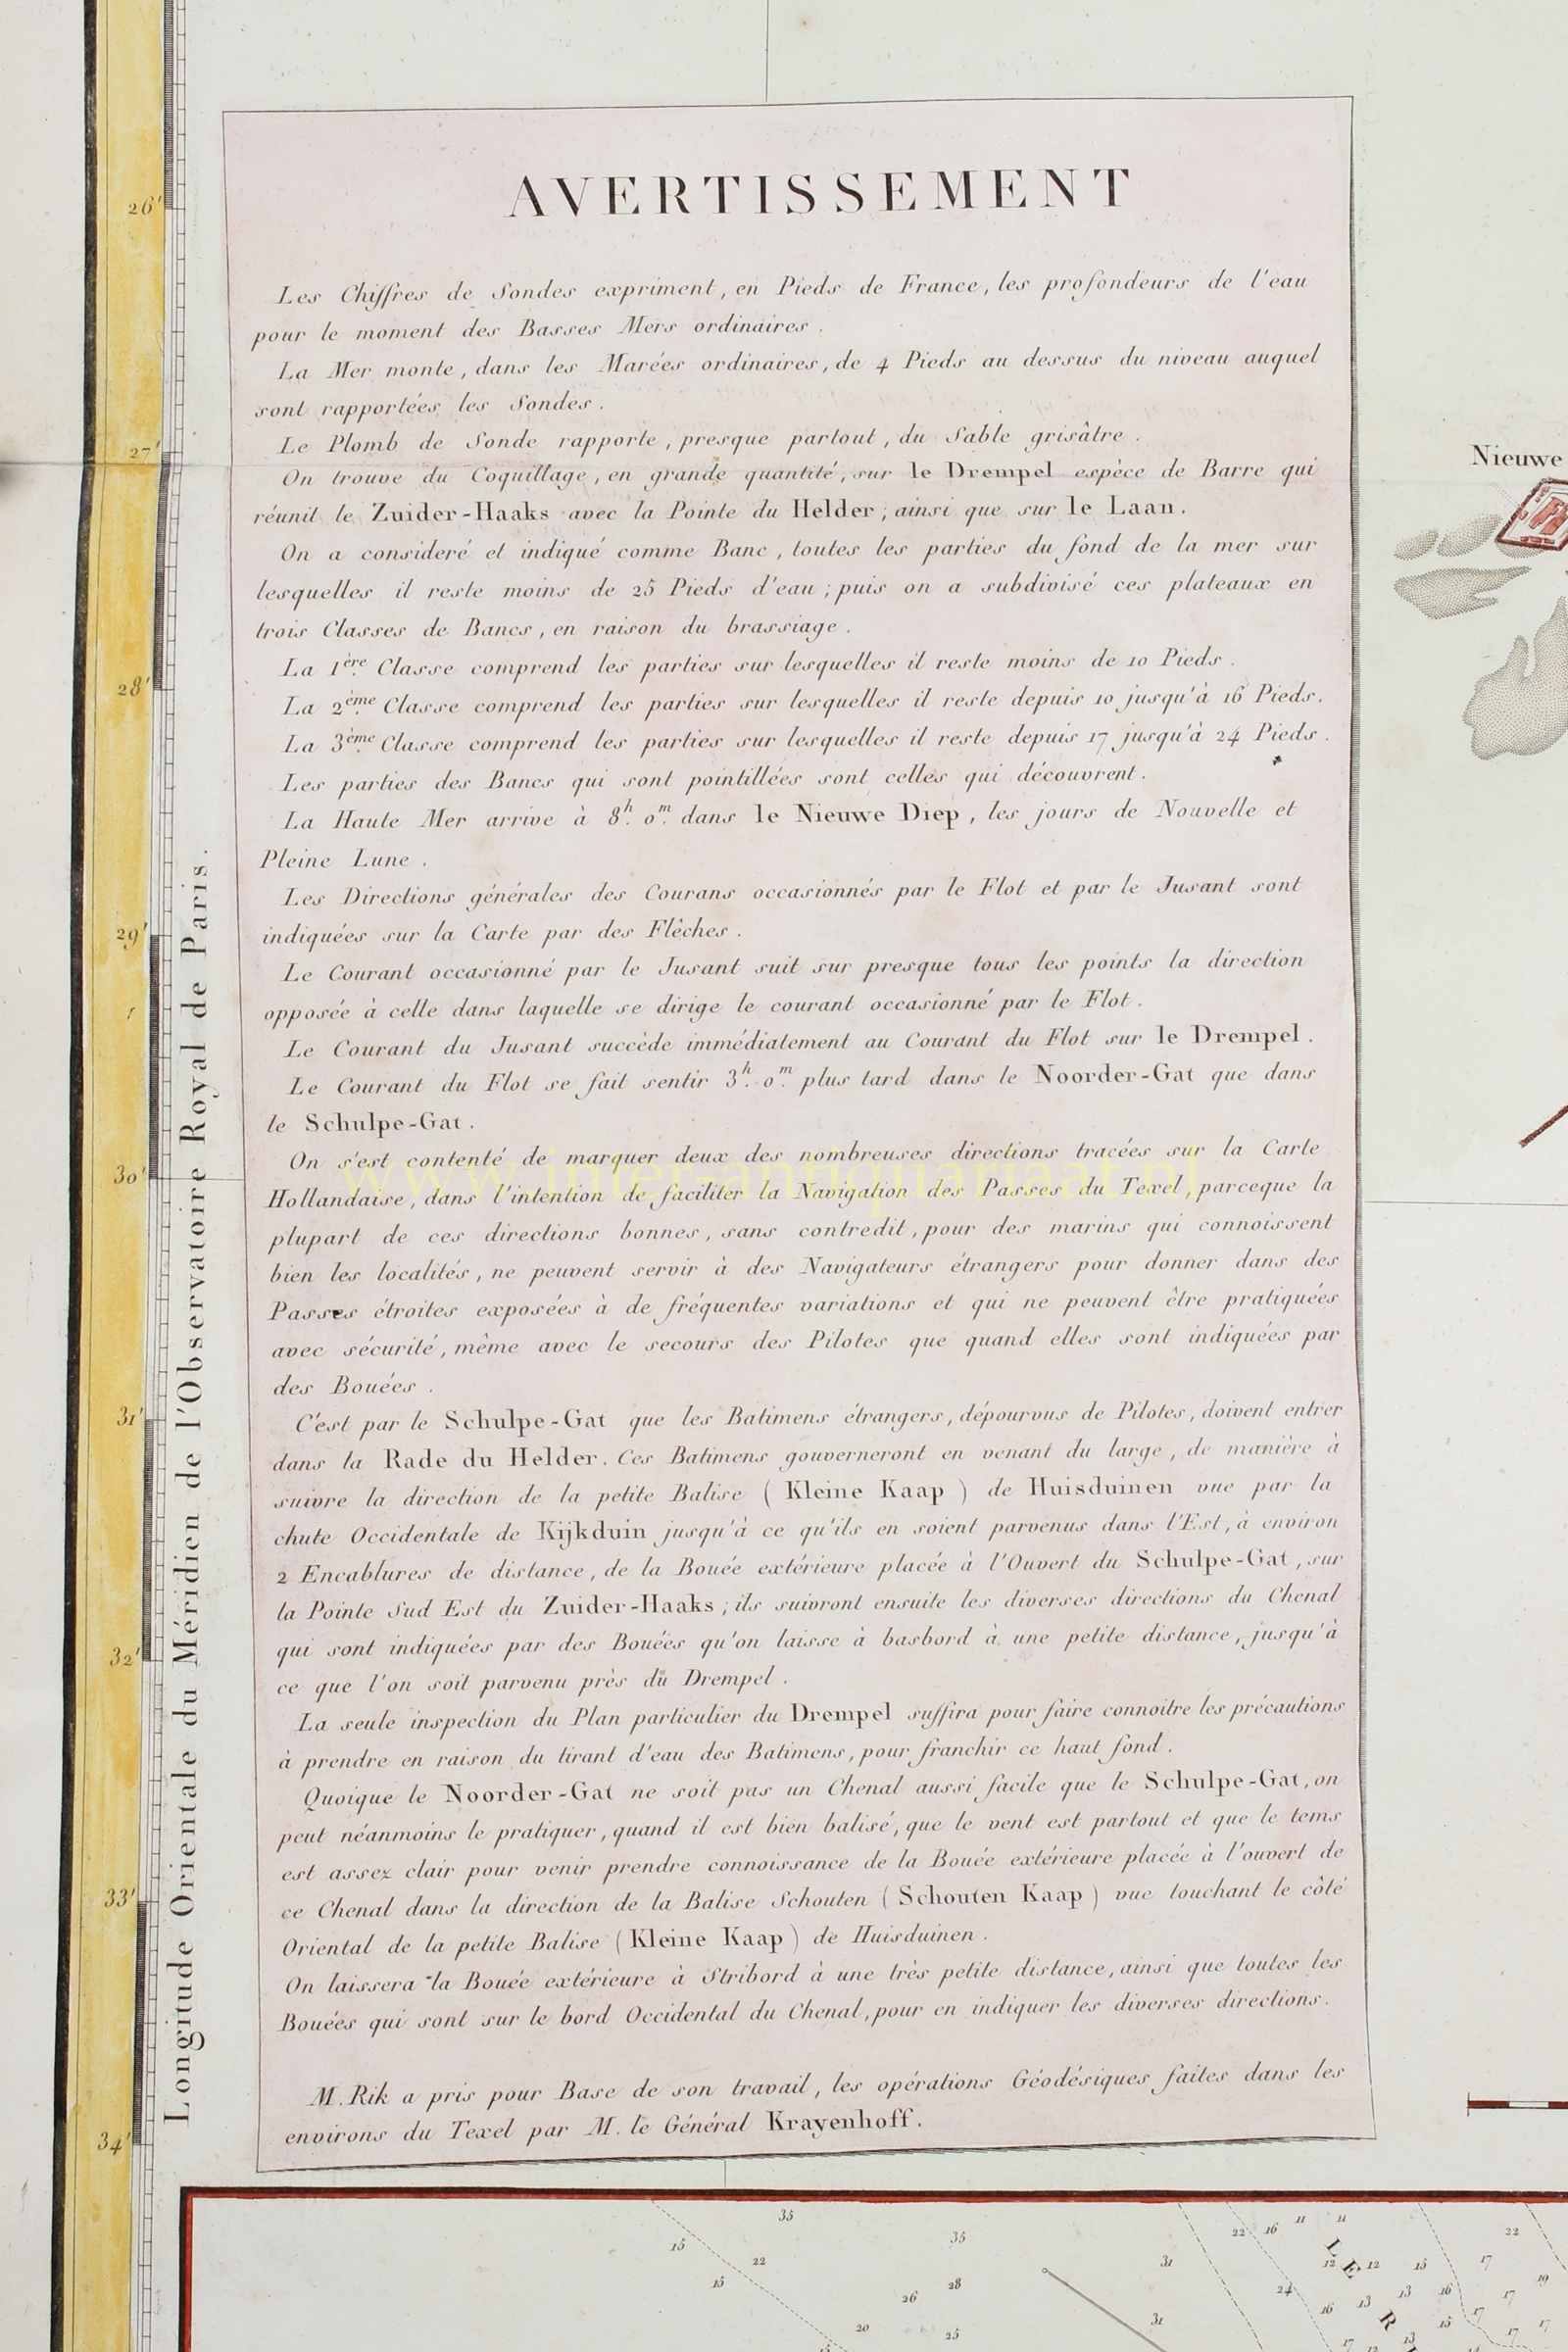 AVERTISSEMENT
Les Chiffres de Sondes expriment, en Pieds de France, les profondeurs de l'eau
pour le moment des Basses Mers ordinaires.
La Mer monte, dans les Marées ordinaires, de 4 Pieds au dessus du niveau auquel
sont rapportées les Sondes.
Le Plomb de Sonde rapporte, presque partout, du Sable grisâtre.
On trouve du Coquillage, en grande quantité, sur le Drempel espèce de Barre qui
réunit le Zuider-Haaks avec la Pointe du Helder; ainsi que sur le Laan.
On a consideré et indiqué comme Banc, toutes les parties du fond de la mer sur
lesquelles il reste moins de 25 Pieds d'eau; puis on a subdivisé ces plateaux en
trois Classes de Bancs, en raison du brassiage.
La 1ère Classe comprend les parties sur lesquelles il reste moins de 10 Pieds.
La 2ème Classe comprend les parties sur lesquelles il reste depuis 10 jusqu'à 16 Pieds.
La 3ème Classe comprend les parties sur lesquelles il reste depuis 17 jusqu'à 24 Pieds.
Les parties des Bancs qui sont pointillées sont celles qui découvrent.
La Haute Mer arrive à 8h. 0m. dans le Nieuwe Diep, les jours de Nouvelle et
Pleine Lune.
Les Directions générales des Courans occasionnés par le Flot et par le Jusant sont
indiquées sur la Carte par des Flêches.
Le Courant occasionné par le Jusant suit sur presque tous les points la direction
opposée à celle dans laquelle se dirige le courant occasionné par le Flot.
Le Courant du Jusant succède immédiatement au Courant du Flot sur le Drempel.
Le Courant du Flot se fait sentir 3h. 0m. plus tard dans le Noorder-Gat que dans
le Schulpe-Gat.
On s'est contenté de marquer deux des nombreuses directions tracées sur la Carte
Hollandaise, dans l'intention de faciliter la Navigation des Passes du Texel, parceque la
plupart de ces directions bonnes, sans contredit, pour des marins qui connoissent
bien les localités, ne peuvent servir à des Navigateurs étrangers pour donner dans des
Passes étroites exposées à de fréquentes variations et qui ne peuvent être pratiquées
avec sécurité, même avec le secours des Pilotes que quand elles sont indiquées par
des Bouées.
C'est par le Schulpe-Gat que les Batimens étrangers, dépourvus de Pilotes, doivent entrer
dans la Rade du Helder. Ces Batimens gouverneront en venant du large, de manière à
suivre la direction de la petite Balise (Kleine Kaap) de Huisduinen vue par la
chute Occidentale de Kijkduin jusqu'à ce qu'ils en soient parvenus dans l'Est, à environ
2 Encablures de distance, de la Bouée extérieure placée à l'Ouvert du Schulpe-Gat, sur
la Pointe Sud Est du Zuider-Haaks; ils suivront ensuite les diverses directions du Chenal
qui sont indiquées par des Bouées qu'on laisse à basbord à une petite distance, jusqu'à
ce que l'on soit parvenu près du Drempel.
La seule inspection du Plan particulier du Drempel suffira pour faire connoitre les précautions
à prendre en raison du tirant d'eau des Batimens, pour franchir ce haut fond.
Quoique le Noorder-Gat ne soit pas un Chenal aussi facile que le Schulpe-Gat, on
peut néanmoins le pratiquer, quand il est bien balisé, que le vent est partout et que le tems
est assez clair pour venir prendre connoissance de la Bouée extérieure placée à l'ouvert de
ce Chenal dans la direction de la Balise Schouten (Schouten Kaap) vue touchant le côté
Oriental de la petite Balise (Kleine Kaap) de Huisduinen.
On laissera la Bouée extérieure à Stribord à une très petite distance, ainsi que toutes les
Bouées qui sont sur le bord Occidental du Chenal, pour en indiquer les diverses directions.
M. Rik a pris pour Base de son travail, les opérations Géodésiques faites dans les
environs du Texel par M. le Général Krayenhoff.
Longitude Orientale du Méridien de l'Observatoire Royal de Paris.
26'
27'
28'
29'
30'
31'
32'
33'
34'
Nieuwe
35
15
35
22
15
28
26
20
25
31
31
22 16 11 11
22
12 12 15 17
24 13 16 17 19
16 13 15 17 17
17 12 13 17
L E R